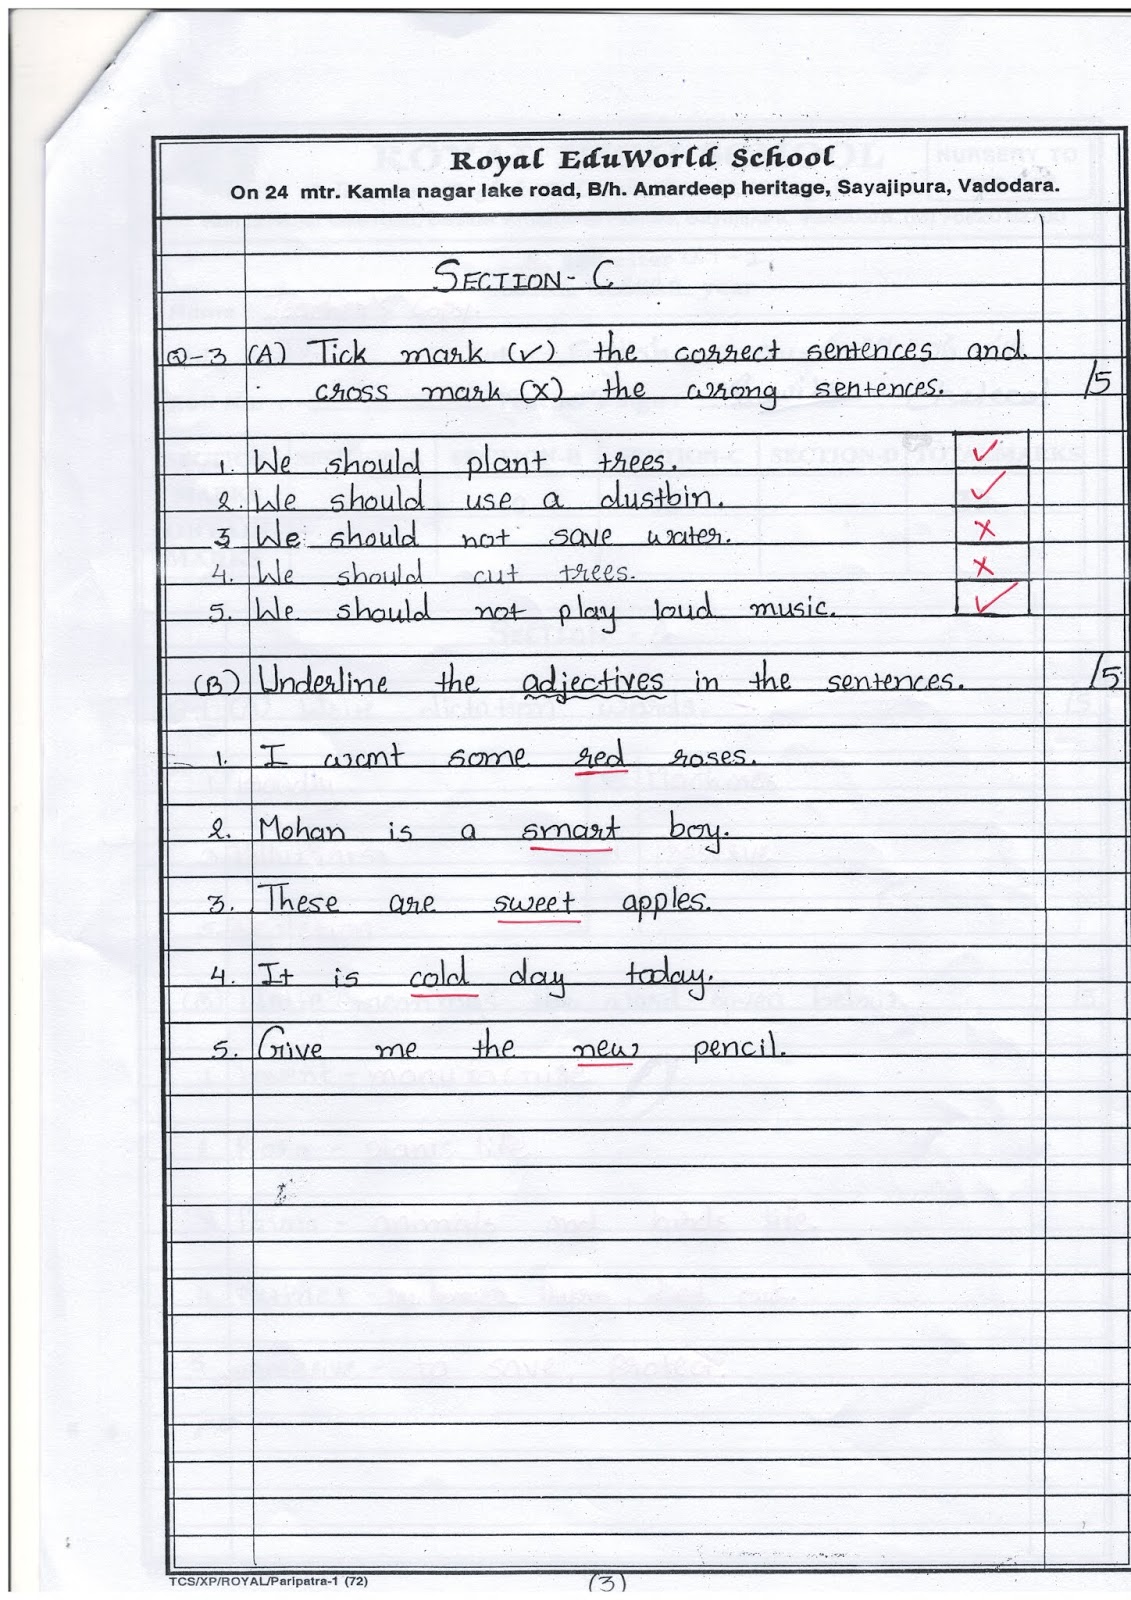 Royal EduWorld School
On 24 mtr. Kamla nagar lake road, B/h. Amardeep heritage, Sayajipura, Vadodara.
SECTION- C
Q-3 (A) Tick mark (✓) the correct sentences and
cross mark (x) the wrong sentences. /5
1. We should plant trees. ✓
2. We should use a dustbin. ✓
3. We should not save water. x
4. We should cut trees. x
5. We should not play loud music. ✓
(B) Underline the adjectives in the sentences. /5
1. I want some red roses.
2. Mohan is a smart boy.
3. These are sweet apples.
4. It is cold day today.
5. Give me the new pencil.
TCS/XP/ROYAL/Paripatra-1 (72) (3)